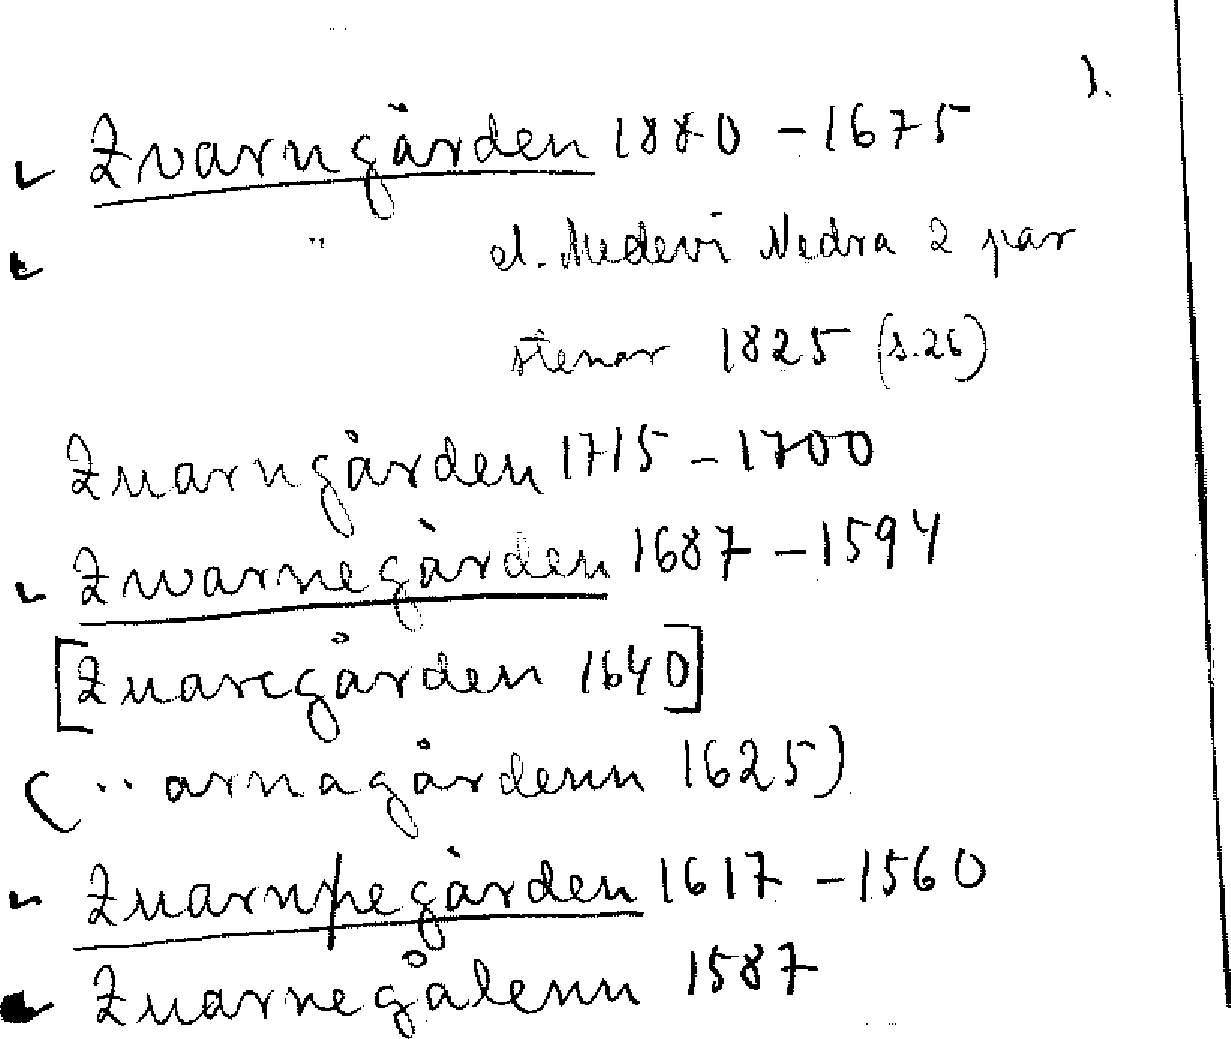 1.
Qvarngården 1880 – 1675
" el. Medevi Nedra 2 par
stenar 1825 (s.26)
Quarngården 1715 – 1700
Qwarnegården 1687 – 1594
[Quaregården 1640]
( .. arnagårdenn 1625)
Quarnegården 1617 – 1560
Quarnegålenn 1587